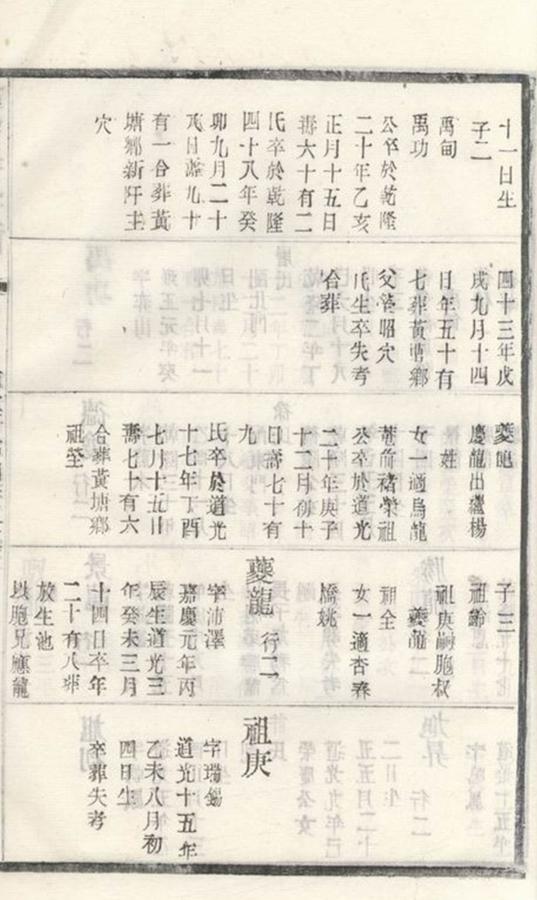 十一日生
子二
禹甸
禹功
公卒於乾隆
二十年乙亥
正月十五日
壽六十有二
氏卒於乾隆
四十八年癸
卯九月二十
日壽九十
有一合葬黃
塘鄉新阡主
穴
四十三年戊
戌九月十四
日年五十有
七葬黃曹鄉
父塋昭穴
氏生卒失考
合葬
夔龍
慶龍出繼楊
姓
女一適烏龍
菴前褚榮祖
公卒於道光
二十年庚子
十二月初十
日壽七十有
九
氏卒於道光
十七年丁酉
七月十五日
壽七十有六
合葬黃塘鄉
祖塋
子三
祖齡
祖庚嗣胞叔
夔龍
祖全
女一適杏春
橋姚
夔龍 行二
字沛澤
嘉慶元年丙
辰生道光三
年癸未三月
十四日卒年
二十有八葬
放生池
以胞兄應龍
祖庚
字瑞錫
道光十五年
乙未八月初
四日生
卒葬失考